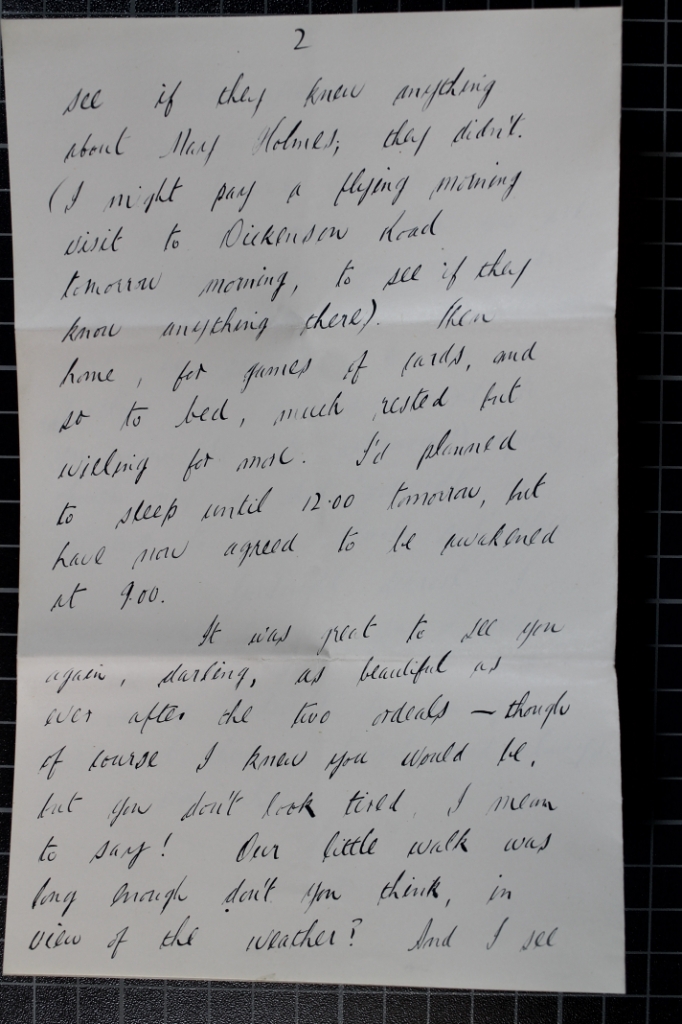 2
see if they knew anything
about Mary Holmes; they didn't.
(I might pay a flying morning
visit to Dickenson Road
tomorrow morning, to see if they
know anything there). Then
home, for games of cards, and
so to bed, much rested but
willing for more. I'd planned
to sleep until 12.00 tomorrow, but
have now agreed to be awakened
at 9.00.
It was great to see you
again, darling, as beautiful as
ever after the two ordeals — though
of course I knew you would be,
but you don't look tired, I mean
to say! Our little walk was
long enough don't you think, in
view of the weather? And I see